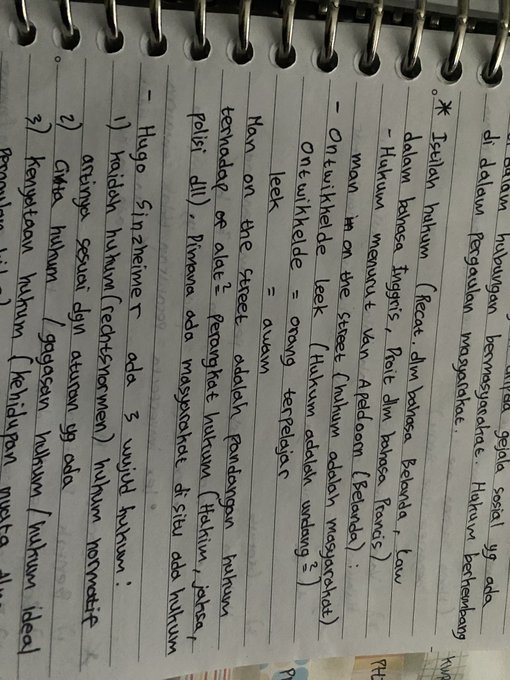 di dalam hubungan bermasyarakat. Hukum berkembang
di dalam pergaulan masyarakat.
* Istilah hukum (Recat. dlm bahasa Belanda, Law
dalam bahasa Inggris, Proit dlm bahasa Prancis)
- Hukum menurut Van Apeldoorn (Belanda) :
man in on the street (hukum adalah masyarakat)
- Ontwikkelde leek (Hukum adalah undang²)
Ontwikkelde = orang terpelajar
leek = awam
Man on the street adalah pandangan hukum
terhadap alat² perangkat hukum (Hakim, jaksa,
polisi dll), Dimana ada masyarakat disitu ada hukum
- Hugo Sinzheimer ada 3 wujud hukum :
1) kaidah hukum (rechtsnormen) hukum normatif
artinya sesuai dgn aturan yg ada
2) Cinta hukum / gagasan hukum / hukum ideal
3) kenyataan hukum (kehidupan nyata